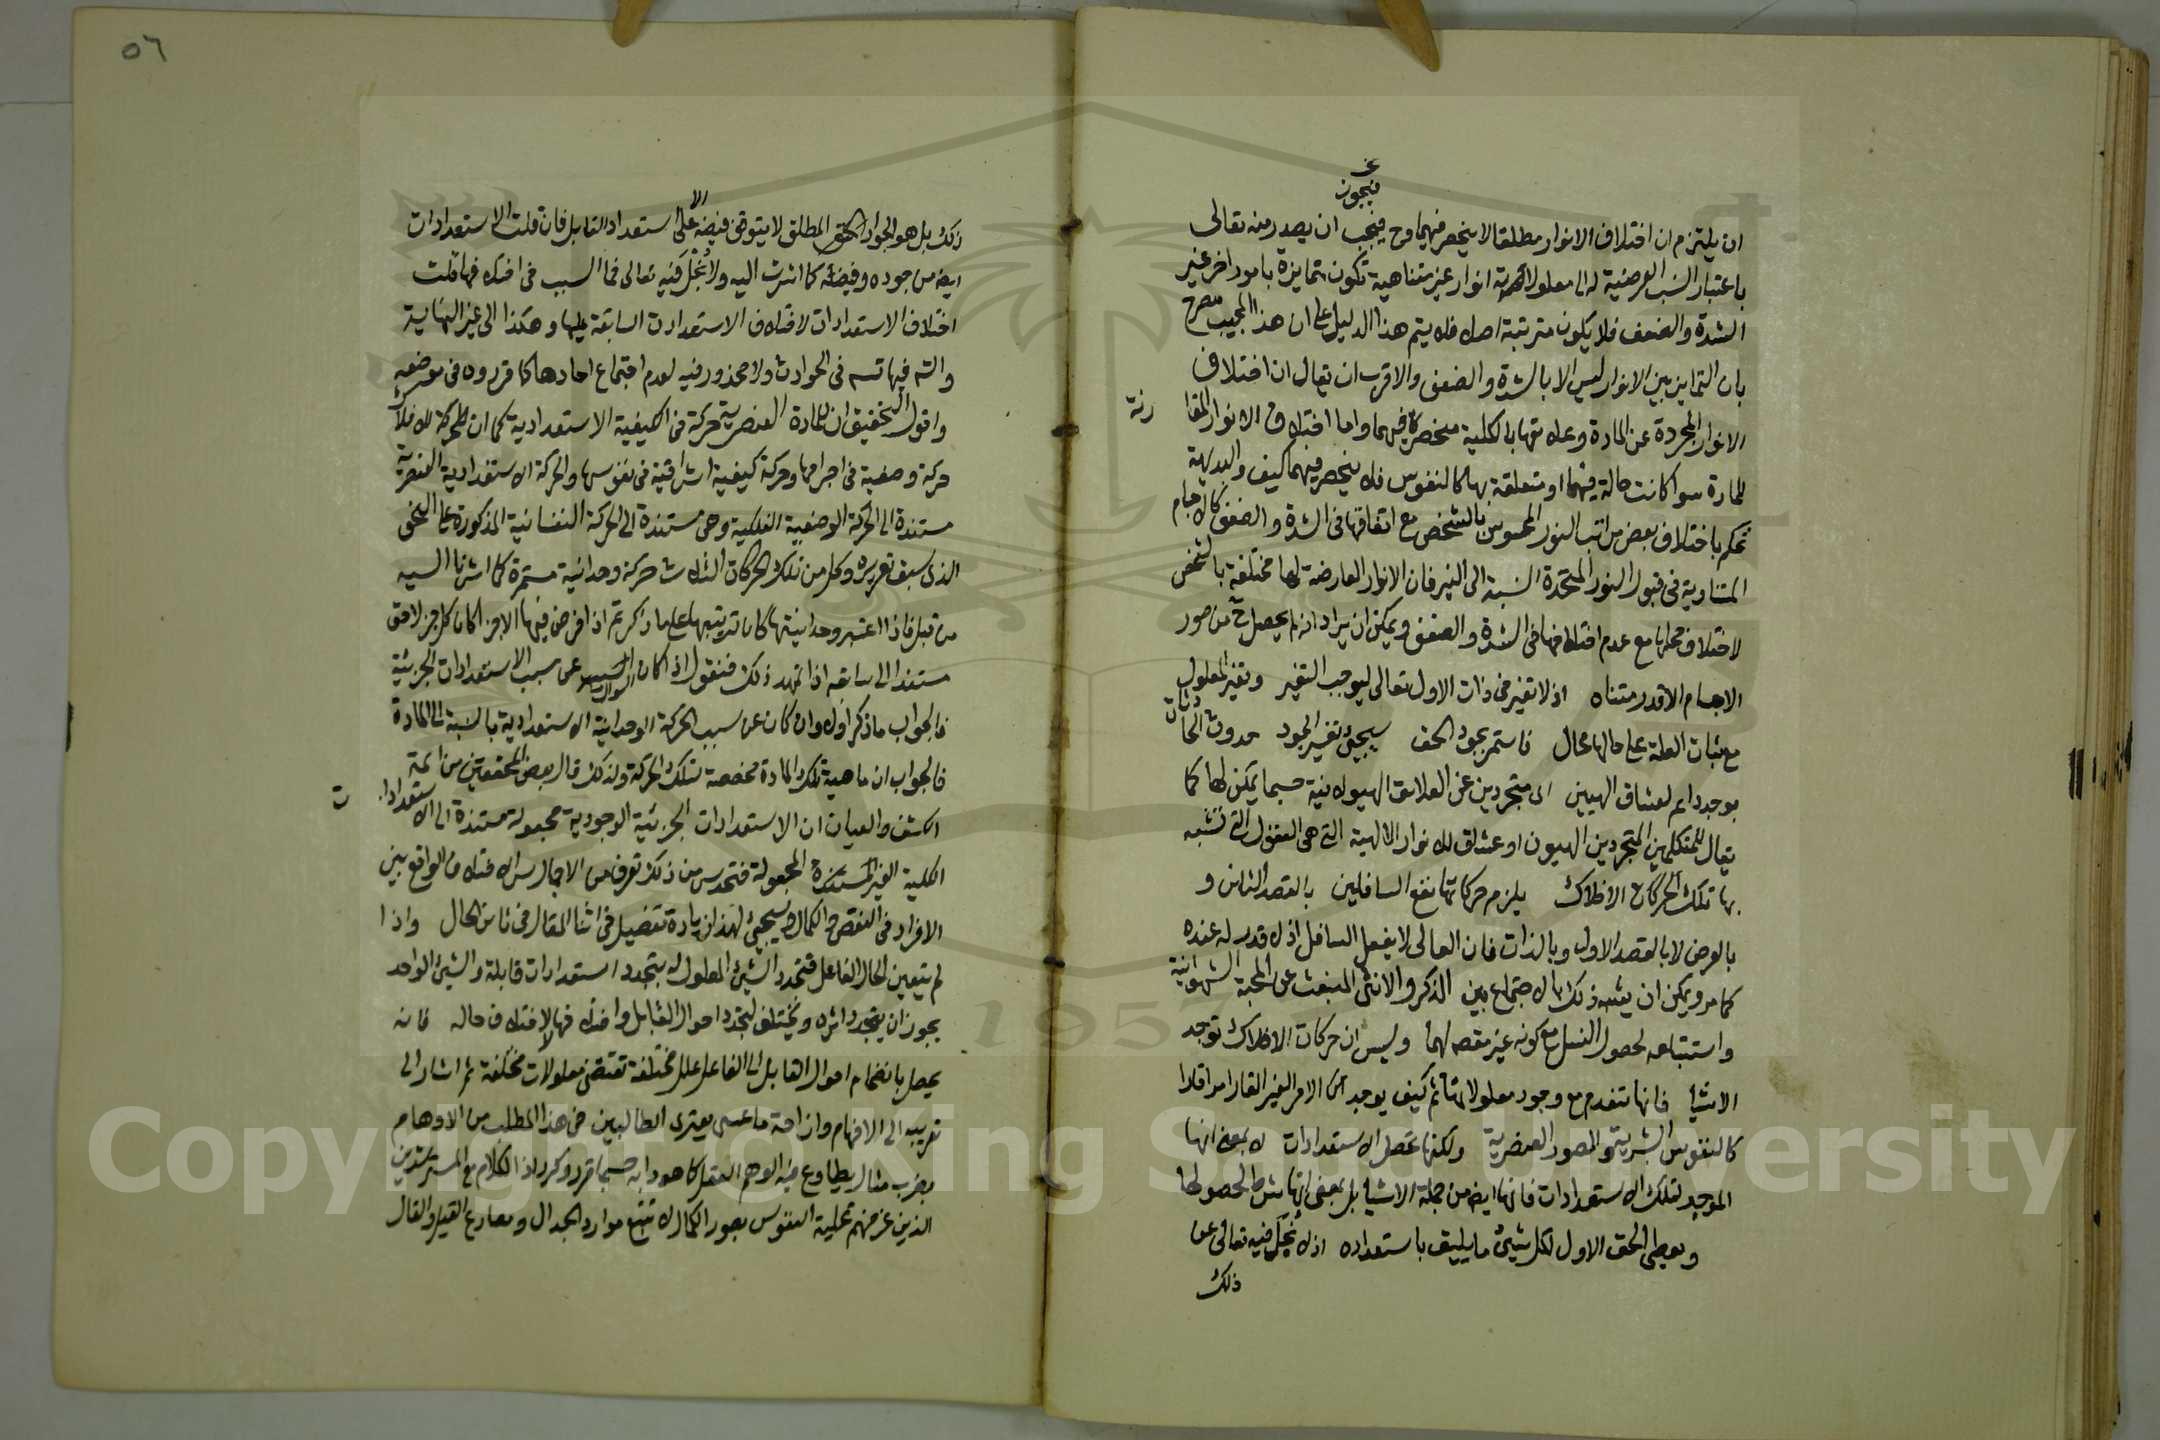 فيجوز
ان يلتزم ان اختلاف الانوار مطلقا لا ينحصر فيهما وح فيجب ان يصدر منه تعالى
باعتبار النسب العرضية له الى معلولاته انوار غير متناهية تكون متمايزة بامور اخر غير
الشدة والضعف فلا يكون مترتبة اصلا فلا يتم هذا الدليل على ان هذا المجيب مصرح
بان التمايز بين الانوار ليس الا بالشدة والضعف والاقرب ان يقال ان اختلاف
الانوار المجردة عن المادة وعلائقها بالكلية منحصر فيهما واما اختلاف الانوار المقا
رنة
للمادة سوا كانت حالة فيها او متعلقة بها كالنفوس فلا ينحصر فيهما كيف والبديهة
تحكم باختلاف بعض مراتب النور المحسوس بالشخص مع اتفاقها في الشدة والضعف كالاجسام
المتساوية في قبول النور المتحدة النسبة الى النير فان الانوار العارضة لها مختلفة بالشخص
لاختلاف محلها مع عدم اختلافها في الشدة والضعف ويمكن ان يراد انه لم يحصل ح من صور
الاجسام الا قدر متناه اذ لا تغير في ذات الاول تعالى ليوجب التغير وتغير المعلول
مع ثبات العلة على حالها محال فاستمر بجود الحق سيجئ تفسير الجود حدوث الحا
دثات
بوجد دايم لعشاق الهيين اى متجردين عن العلائق الهيولانية حسبما يمكن لها كما
يقال للمتكلمين المتجردين الهيون او عشاق للانوار الالهية التي هي العقول التي تشبه
بها تلك الحركات الافلاك يلزم حركاتها نفع السافلين بالقصد الثاني و
بالعرض لا بالقصد الاول وبالذات فان العالى لا يفعل السافل اذ لا قدر له عنده
كما مر ويمكن ان يشبه ذلك بالاجتماع بين الذكر والانثى المنبعث عن المحبة الشهوانية
واستتباعه لحصول النسل مع كونه غير مقصد لهما وليس ان حركات الافلاك توجد
الاشيا فانها تنفدم مع وجود معلولاتها ثم كيف يوجد الامر الغير القار امرا قارا
كالنفوس البشرية والصور العنصرية ولكنها تحصل الاستعدادات لا بمعنى انها
الموجد لتلك الاستعدادات فانها ايض من جملة الاشيا بل بمعنى انها شرط لحصولها
ويعطى الحق الاول لكل شيئ ما يليق باستعداده اذ لا بخل فيه تعالى عن
ذلك
٥٦
ذلك بل هو الجواد الحق المطلق لا يتوقف فيضه الا على استعداد القابل فان قلت الاستعدادات
ايض من جوده وفيضه كما اشرت اليه ولا بخل فيه تعالى فما السبب في اختلافها قلت
اختلاف الاستعدادات لاختلاف الاستعدادت السابقة عليها وهكذا الى غير النهاية
والتسلسل فيها تسلسل في الحوادث ولا محذور فيه لعدم اجتماع احادها كما قرروه في موضعه
واقول التحقيق ان للمادة العنصرية حركة في الكيفية الاستعدادية كما ان للحركة للافلاك
حركة وضعية في اجرامها وحركة كيفية اشراقية في نفوسها والحركة الاستعدادية العنصرية
مستندة الى الحركة الوضعية الفلكية وهي مستندة الى الحركة النفسانية المذكورة على النحو
الذى سبق تقريره وكل من تلك الحركات الثلاث حركة وحدانية مستمرة كما اشرنا اليه
من قبل فاذا اعتبر وحدانيتها كان ترتيبها على ما ذكر ثم اذا فرض فيها الاجزا كان كل جز لاحق
مستندا الى سابقه اذا تمهد ذلك فنقول اذا كان السؤال عن سبب الاستعدادات الجزئية
فالجواب ما ذكر اولا وان كان عن سبب الحركة الوحدانية الاستعدادية بالنسبة الى المادة
فالجواب ان ماهية تلك المادة مخصصة لتلك الحركة ولذلك قال بعض المحققين من ائمة
الكشف والعيان ان الاستعدادات الجزئية الوجودية مجعولة مستندة الى الاستعدادا
ت
الكلية الغير المستندة المجعولة فتحدس من ذلك تعرف من الاجمال سر الاختلاف الواقع بين
الافراد في النقص والكمال وسيجئ لهذا زيادة تفضيل في اثنا المقال في ثانى الحال واذا
لم يتغير الحال الفاعل فتجدد الشيئ المعلول له بتجدد استعدادات قابلة والشيئ الواحد
يجوز ان يتجدد اثره ويختلف لتجدد احوال القابل واختلافها لا لاختلاف حاله فانه
يحصل بانضمام احوال القابل الى الفاعل علل مختلفة تقتضى معلولات مختلفة ثم اشار الى
تقريبه الى الافهام وازاحة ما عسى يعترى الطالبين في هذا المطلب من الاوهام
بضرب مثال يطاوع فيه الوهم العقل كما هو دابه حسبما قرر وكرر اذ الكلام مع المسترشدين
الذين غرضهم تحلية النفوس بصور الكمال لا تتبع موارد الجدال ومصارع القيل والقال
Copyright © King Saud University
1957